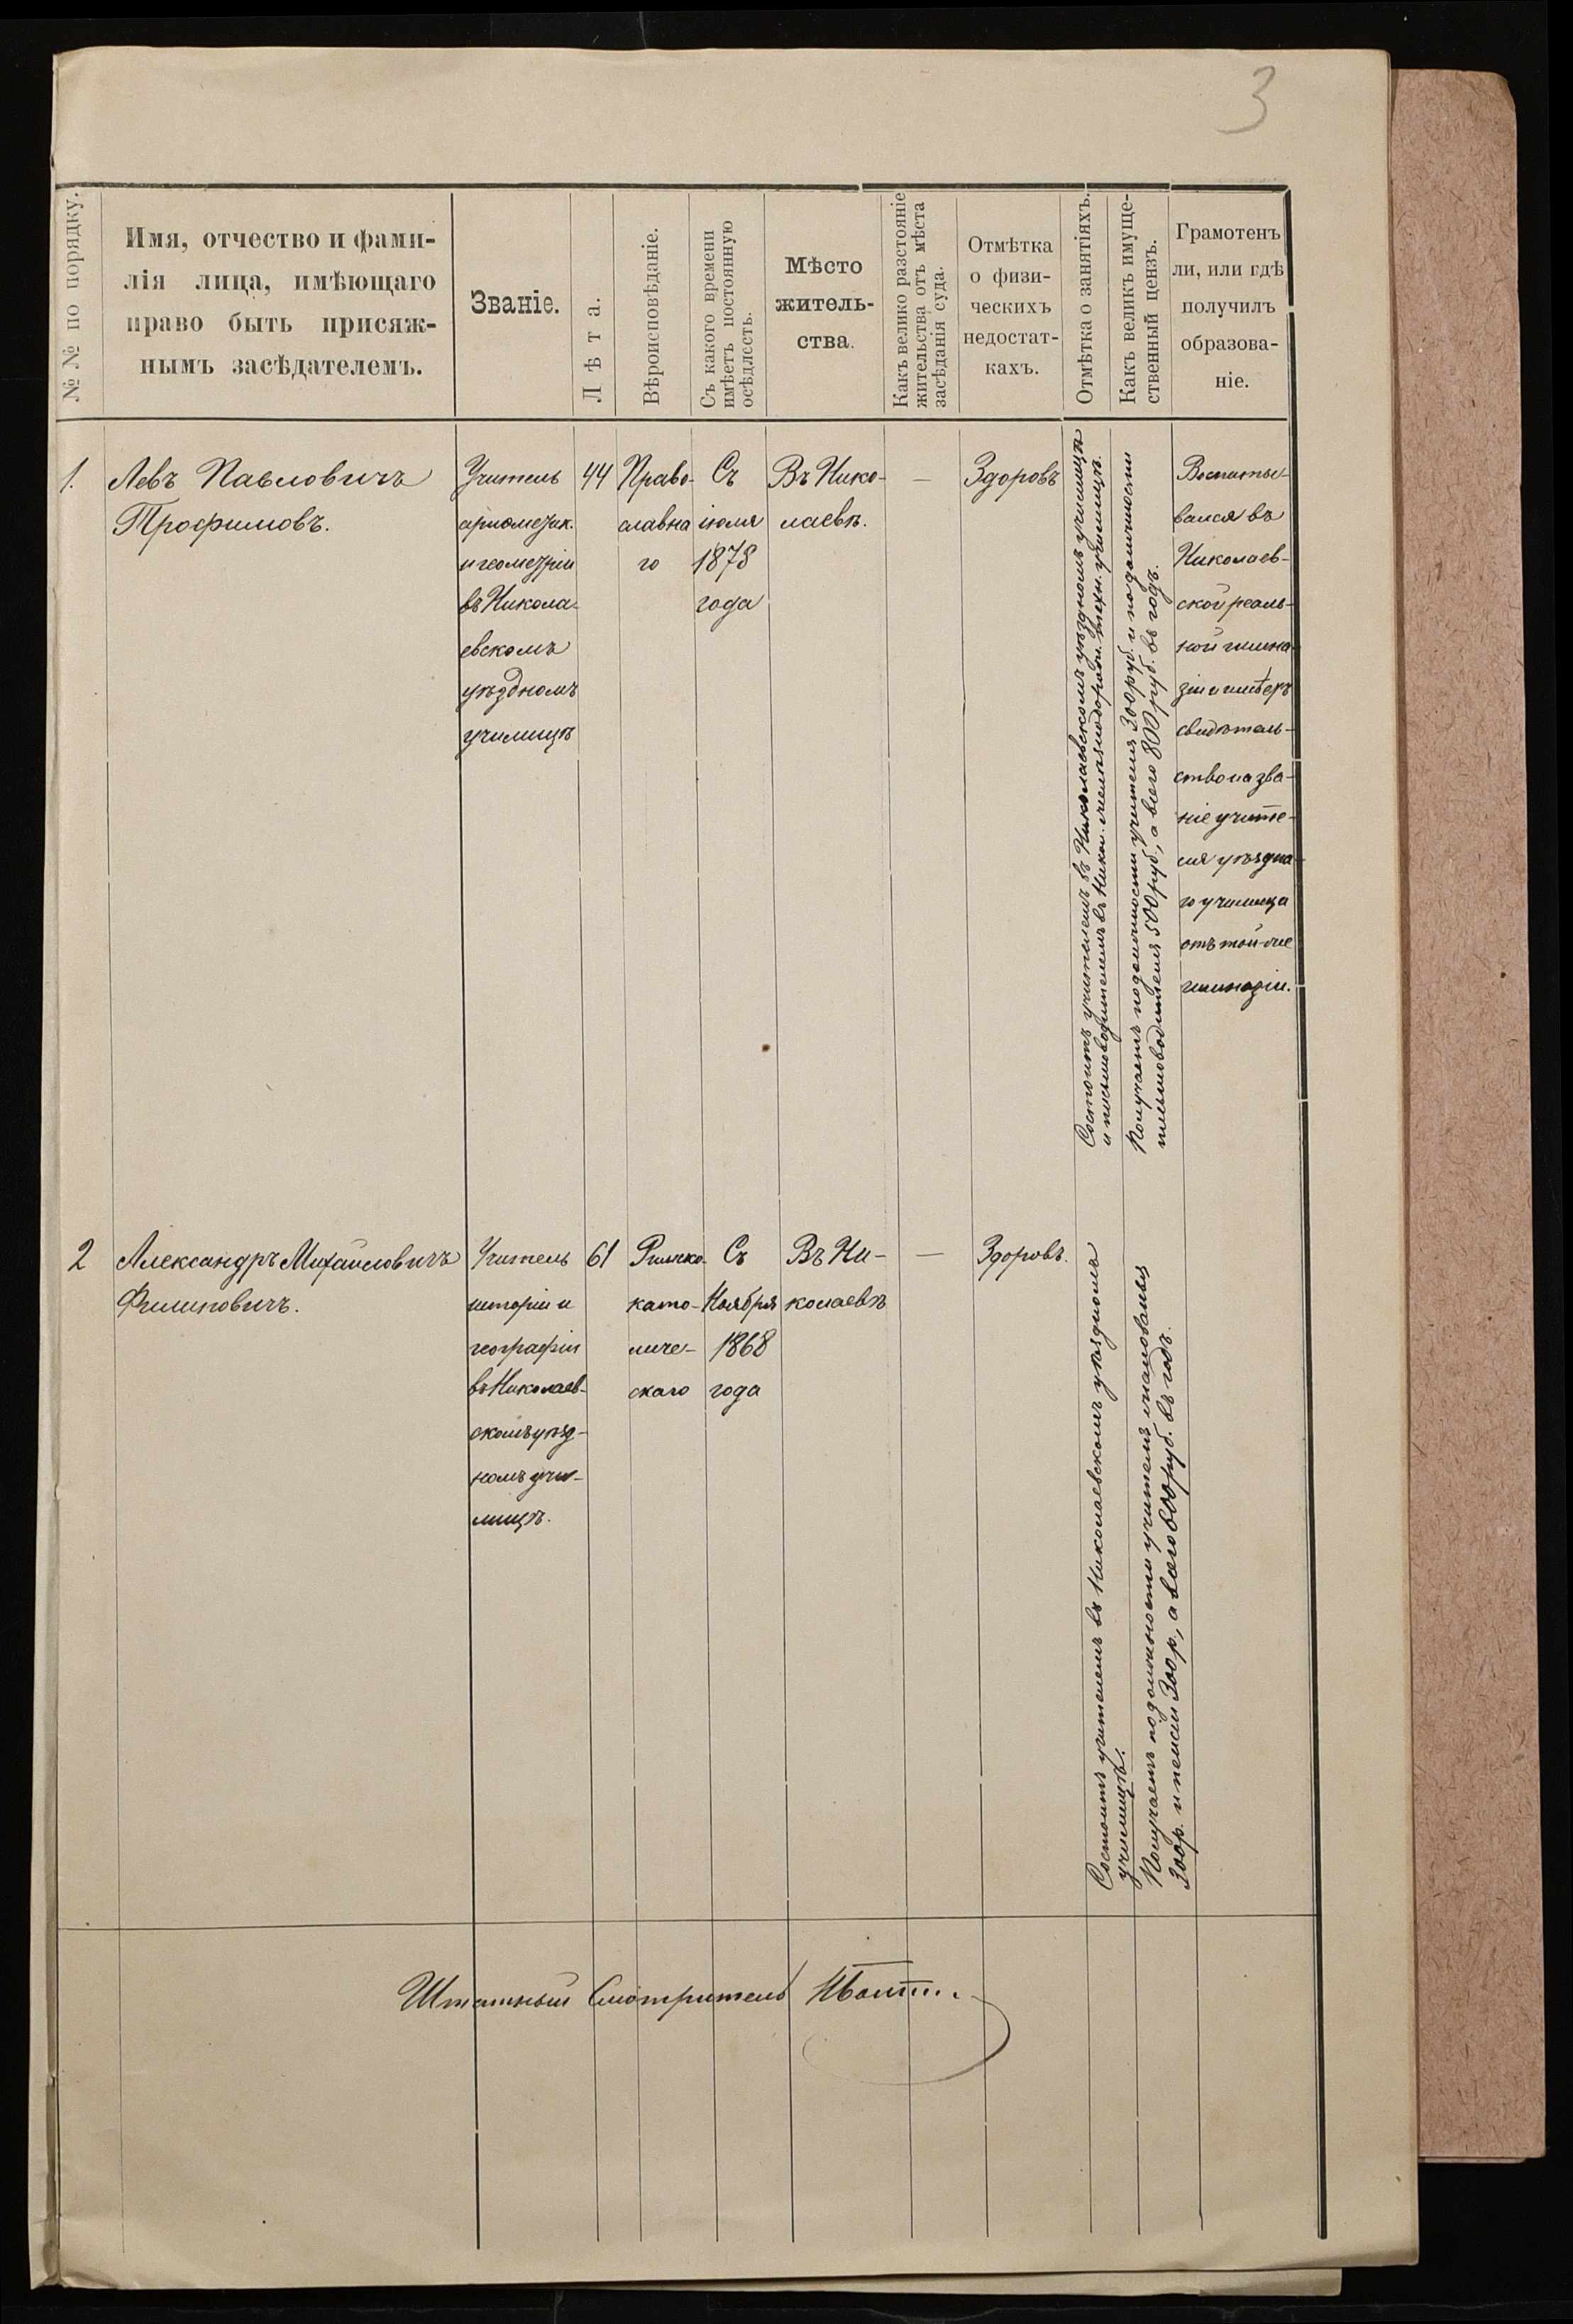 3
№№ по порядку.
Имя, отчество и фами-
лія лица, имѣющаго
право быть присяж-
нымъ засѣдателемъ.
Званіе.
Лѣта.
Вѣроисповѣданіе.
Съ какого времени
имѣетъ постоянную
осѣдлость.
Мѣсто
житель-
ства.
Какъ велико разстояніе
жительства отъ мѣста
засѣданія суда.
Отмѣтка
о физи-
ческихъ
недостат-
кахъ.
Отмѣтка о занятіяхъ.
Какъ великъ имуще-
ственный цензъ.
Грамотенъ
ли, или гдѣ
получилъ
образова-
ніе.
1.
Левъ Павловичъ
Трофимовъ.
Учитель
ариѳметик.
и геометріи
въ Никола-
евскомъ
уѣздномъ
училищѣ
44
Право-
славна
го
Съ
іюля
1878
года
Въ Нико-
лаевѣ.
—
Здоровъ
Состоитъ учителемъ въ Николаевскомъ уѣздномъ училищѣ
и письмоводителемъ въ Никол. техн. училищѣ.
Получаетъ по должности учителя 300 руб. и по должности
письмоводителя 500 руб., а всего 800 руб. въ годъ.
Воспиты-
вался въ
Николаев-
ской реаль-
ной гимна-
зіи и имѣетъ
свидѣтель-
ство на зва-
ніе учите-
ля уѣздна-
го училища
отъ той-же
гимназіи.
2
Александръ Михайловичъ
Филиповичъ.
Учитель
исторіи и
географіи
въ Николаев-
скомъ уѣзд-
номъ учи-
лищѣ.
61
Римско-
като-
личе-
скаго
Съ
Ноября
1868
года
Въ Ни-
колаевѣ
—
Здоровъ.
Состоитъ учителемъ въ Николаевскомъ уѣздномъ
училищѣ.
Получаетъ по должности учителя жалованья
300 р. и пенсіи 300 р., а всего 600 руб. въ годъ.
Штатный Смотритель